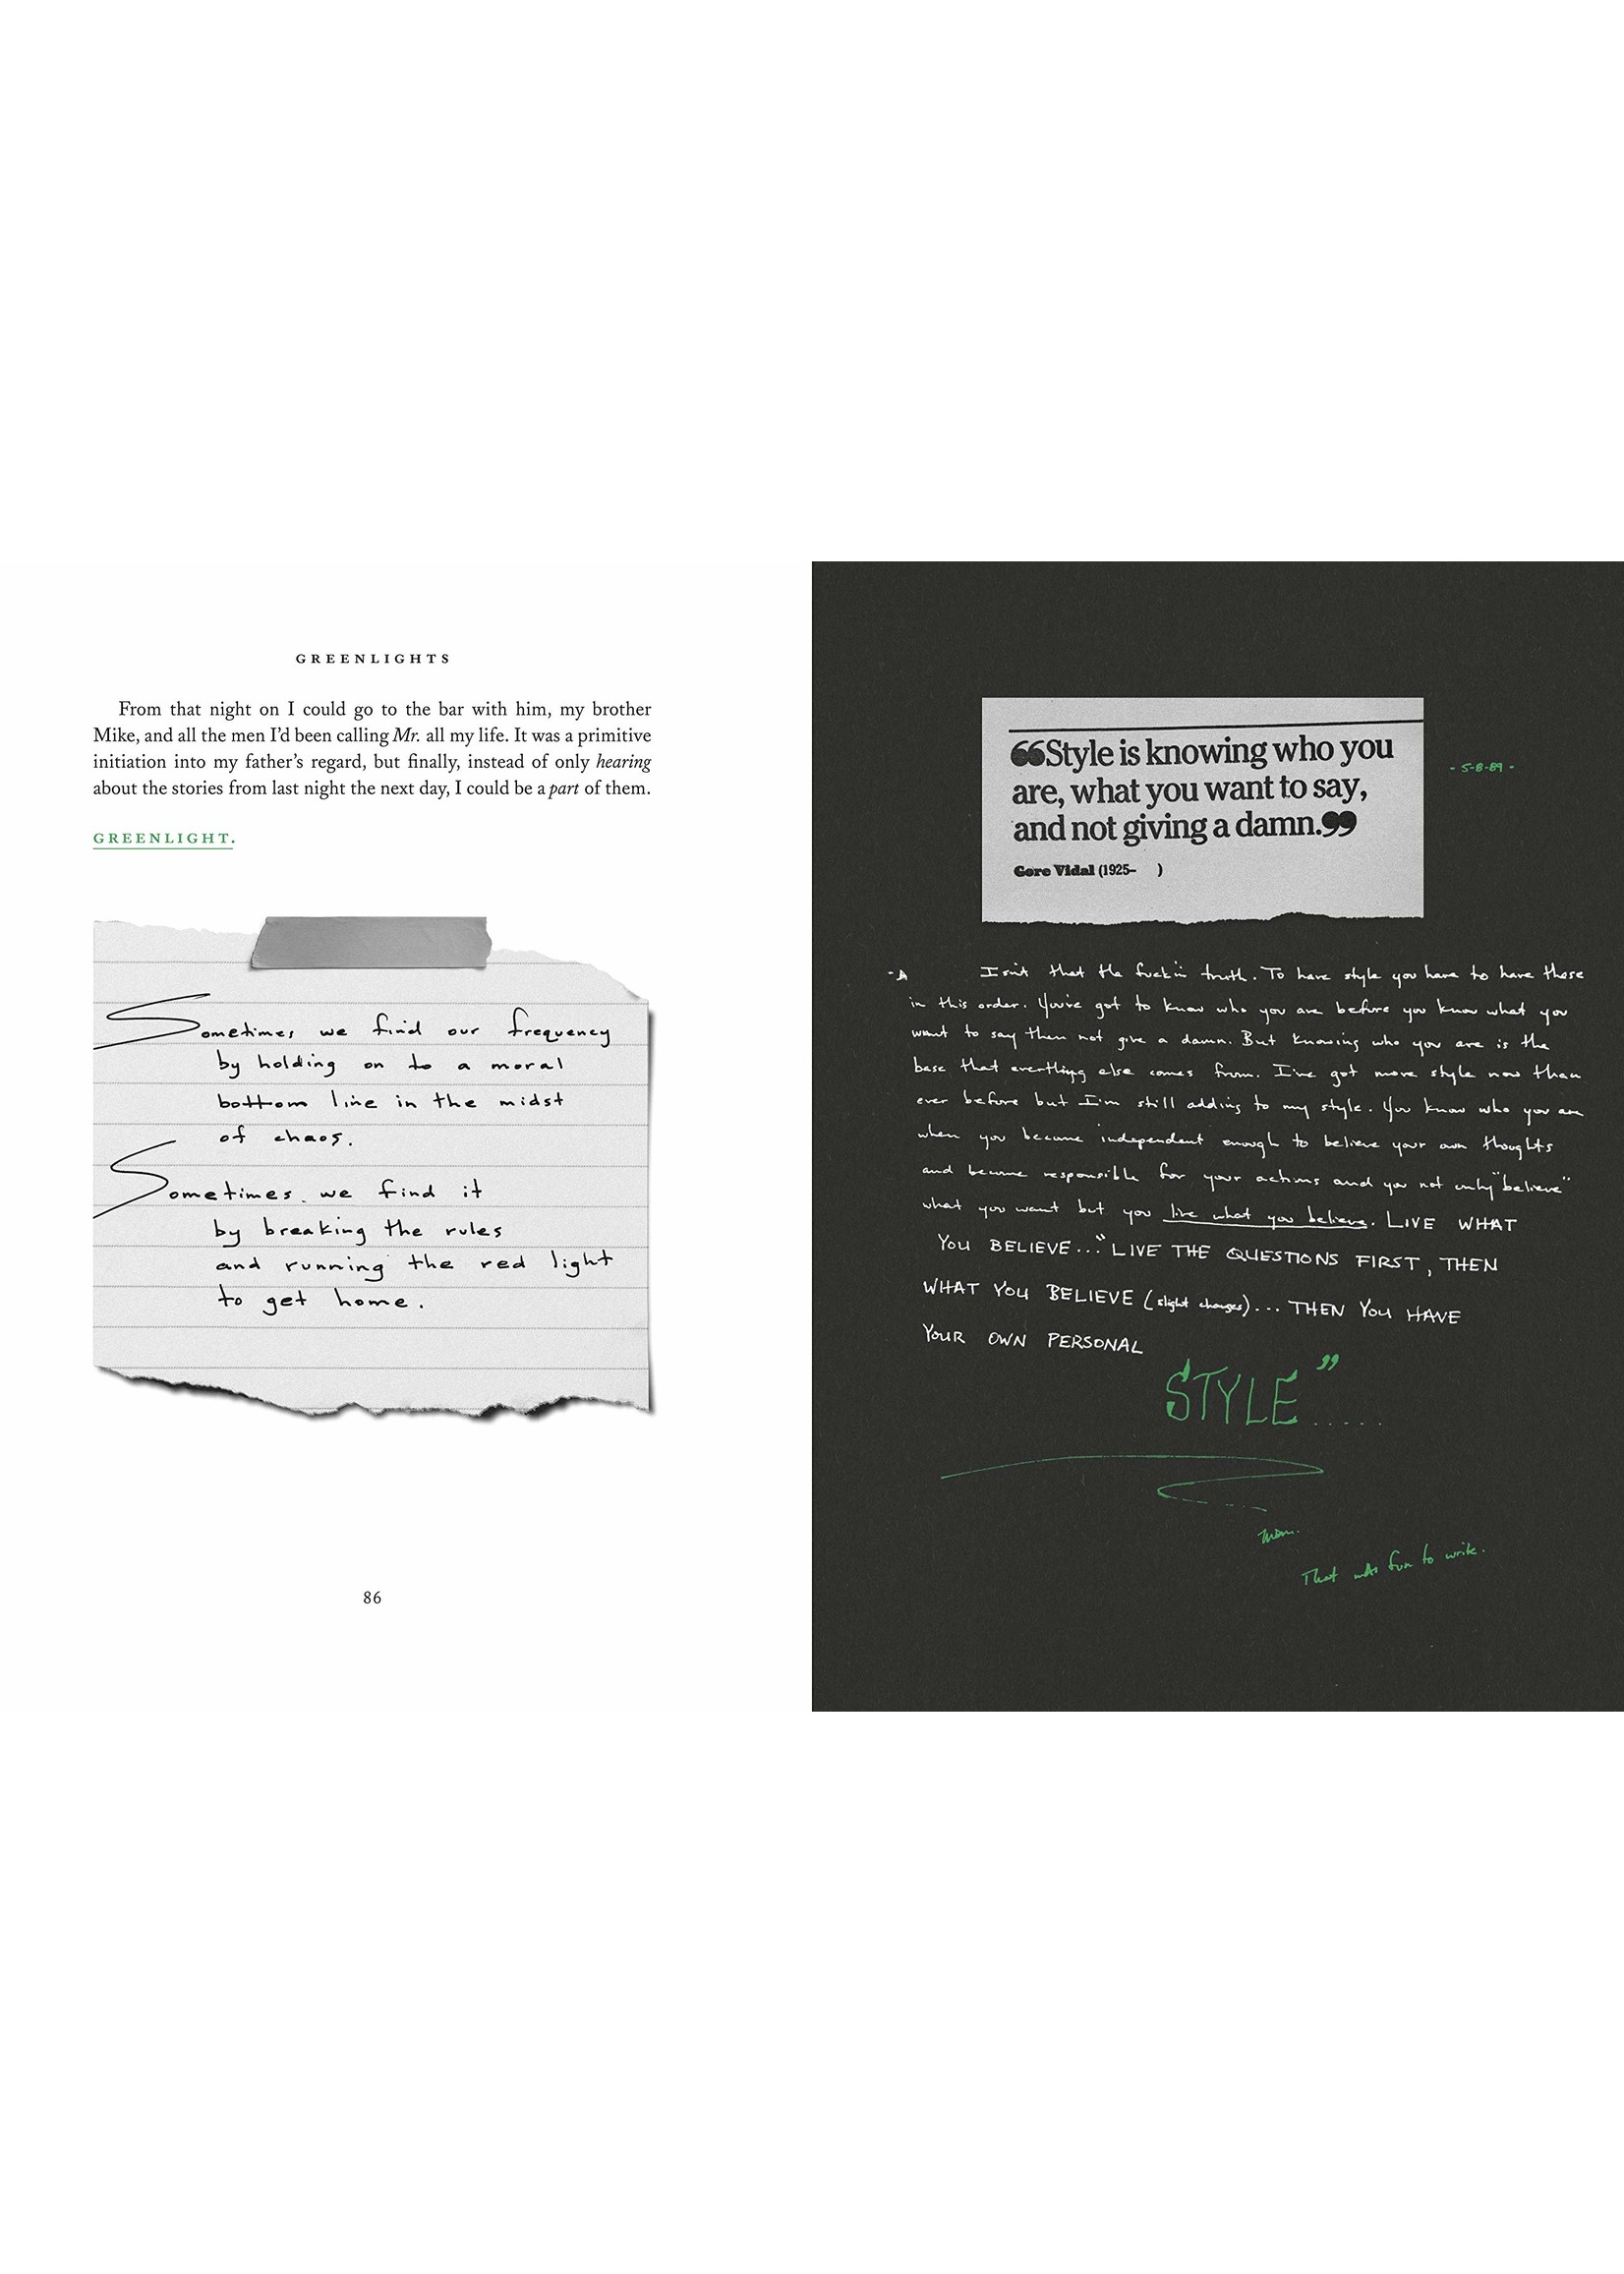 GREENLIGHTS
From that night on I could go to the bar with him, my brother
Mike, and all the men I’d been calling Mr. all my life. It was a primitive
initiation into my father’s regard, but finally, instead of only hearing
about the stories from last night the next day, I could be a part of them.
GREENLIGHT.
Sometimes we find our frequency
by holding on to a moral
bottom line in the midst
of chaos.
Sometimes we find it
by breaking the rules
and running the red light
to get home.
86
❝Style is knowing who you
are, what you want to say,
and not giving a damn.❞
Gore Vidal (1925– )
- 5-8-89 -
- A Isn't that the fuck'n truth. To have style you have to have these
in this order. You've got to know who you are before you know what you
want to say then not give a damn. But knowing who you are is the
base that everthigg else comes from. I've got more style now than
ever before but I'm still adding to my style. You know who you are
when you become independent enough to believe your own thoughts
and become responsible for your actions and you not only "believe"
what you want but you live what you believe. LIVE WHAT
YOU BELIEVE..." LIVE THE QUESTIONS FIRST, THEN
WHAT YOU BELIEVE (slight changes)... THEN YOU HAVE
YOUR OWN PERSONAL
STYLE".....
That was fun to write.